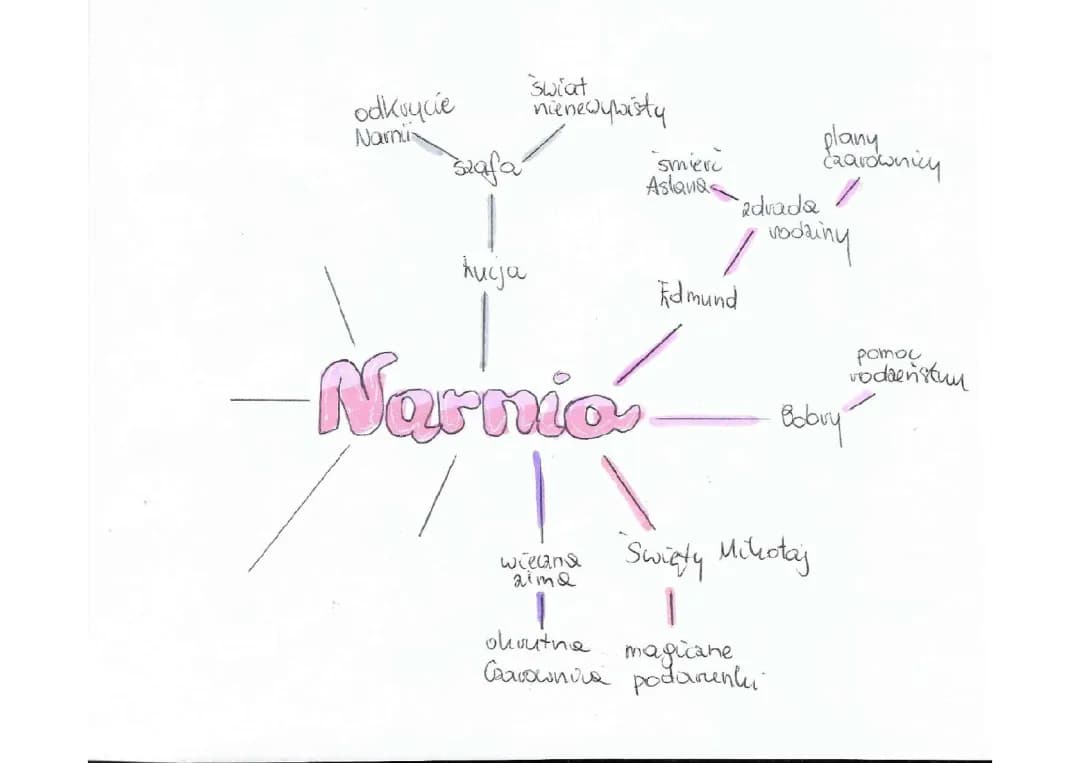 odkrycie
Narnii
świat
nierzeczywisty
szafa
Łucja
śmierć
Aslana
plany
czarownicy
zdrada
rodziny
Edmund
Narnia
pomoc
rodzeństwu
Bobry
wieczna
zima
Święty Mikołaj
okrutna
Czarownica
magiczne
podarunki